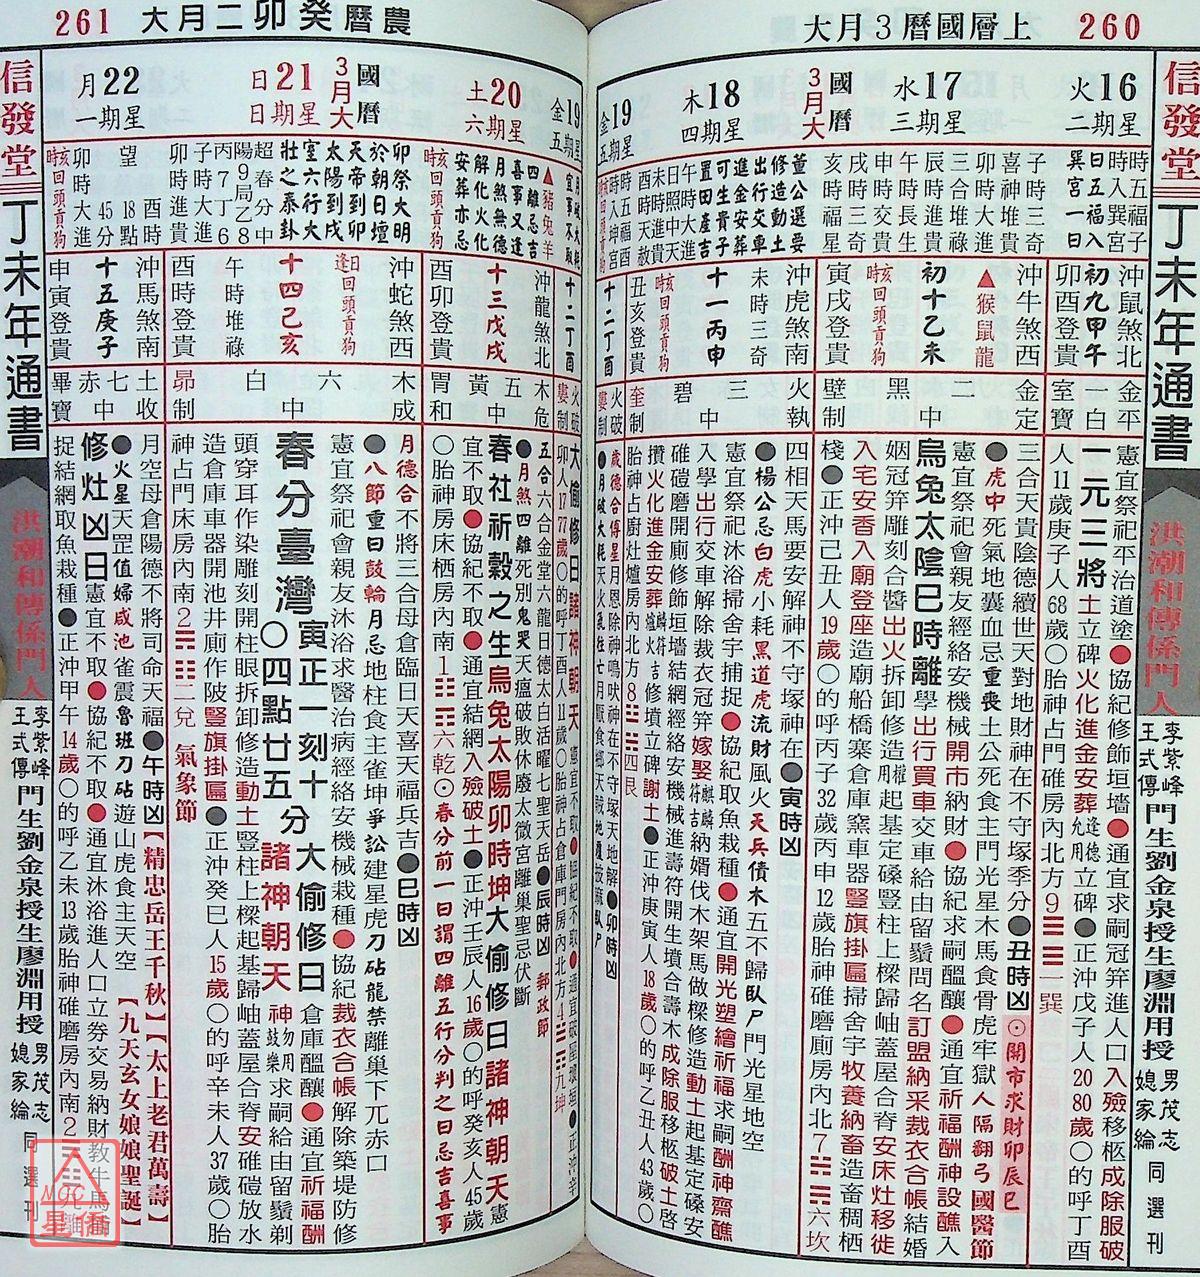 260
上層國曆3月大
信發堂
丁未年通書
洪潮和傳係門人
李紫峰
王式傳
門生劉金泉授生廖淵用授
男茂志
媳家綸
同選刊
16
火
星期二
時時五福子
時入巽宮
日五福入
巽宮一日
沖鼠煞北
初九甲午
卯酉登貴
金平
一白
室寶
憲宜祭祀平治道塗●協紀修飾垣墻●通宜求嗣冠笄進人口入殮移柩成除服破
一元三將土立碑火化進金安葬逢德允用立碑●正沖戊子人20 80歲〇的呼丁酉
人11歲庚子人68歲〇胎神占門碓房內北方9☴☴一巽
國曆
3月大
17
水
星期三
子時三奇
喜神堆貴
卯時大進
三合堆祿
辰時三進
午時長生
申時交貴
戌時三奇
亥時福星
沖牛煞西
▲猴鼠龍
初十乙未
亥時回頭貢狗
寅戌登貴
金定
二黑中
壁制
三合天貴陰德續世天對地財神在不守塚季分●丑時凶⊙開市求財卯辰巳
●虎中死氣地囊血忌重喪土公死食主門光星木馬食骨虎牢獄人隔翻弓國醫節
憲宜祭祀會親友經絡安機械開市納財●協紀求嗣醞釀●通宜祈福酬神設醮入
烏兔太陰巳時離學出行買車交車給由留鬚問名訂盟納采裁衣合帳結婚
姻冠笄雕刻合醬出火拆卸修造用起基定磉豎柱上樑歸岫蓋屋合脊安床灶移徙
入宅安香入廟登座造廟船橋寨倉庫窯車器豎旗掛匾掃舍宇牧養納畜造畜稠栖
棧●正沖己丑人19歲〇的呼丙子32歲丙申12歲胎神碓磨廁房內北7☵☵六坎
18
木
星期四
董公選要
修造動土
出行交車
進金安葬
可生貴子
置田產吉
午時大進
日照中天
未時進貴
酉時天赦
沖虎煞南
未時三奇
十一丙申
亥時回頭貢狗
丑亥登貴
火執
三碧中
奎制
四相天馬要安解神不守塚神在●寅時凶
●楊公忌白虎小耗黑道虎流財風火天兵債木五不歸臥尸門光星地空
憲宜祭祀沐浴掃舍宇捕捉●協紀取魚栽種●通宜開光塑繪祈福求嗣酬神齋醮
入學出行交車解除裁衣冠笄嫁娶麒麟符吉納婿伐木架馬做樑修造動土起基定磉安
碓磑磨開廁修飾垣墻結網經絡安機械進壽符開生墳合壽木成除服移柩破土啓
攢火化進金安葬麟符吉修墳立碑謝土●正沖庚寅人18歲〇的呼乙丑人43歲〇
胎神占廚灶爐房內北方8☶☶四艮
19
金
星期五
十二丁酉
火破
婁制
261
農曆癸卯二月大
沖龍煞北
大偷修日諸神朝天
20
土
星期六
▲豬兔羊
四離忌吉
喜事又逢
月煞無德
解化火化
安葬亦忌
亥時回頭貢狗
十三戊戌
酉卯登貴
木危
五黃中
胃和
五合六合金堂六龍日德太白活曜七聖天岳●辰時凶 郵政節
●月煞四離死別鬼哭天瘟破敗休廢太微宮離巢聖忌伏斷
春社祈穀之生烏兔太陽卯時坤大偷修日諸神朝天憲
宜不取●協紀不取●通宜結網入殮破土●正沖壬辰人16歲〇的呼癸亥人45歲
〇胎神房床栖房內南1☰☰六乾⊙春分前一日謂四離五行分判之日忌吉喜事
國曆
3月大
21
日
星期日
卯祭大明
於朝日壇
天帝到卯
太陽到戌
室六行火
壯之泰卦
超春分中
陽9局乙8
丙7丁6
子時大進
卯時進貴
沖蛇煞西
日逢回頭貢狗
十四己亥
午時堆祿
酉時登貴
木成
六白中
昴制
月德合不將三合母倉臨日天喜天福兵吉●巳時凶
●八節重日鼓輪月忌地柱食主雀坤爭訟建星虎刀砧龍禁離巢下兀赤口
憲宜祭祀會親友沐浴求醫治病經絡安機械栽種●協紀裁衣合帳解除築堤防修
春分臺灣寅正一刻十分〇四點廿五分大偷修日諸神朝天倉庫醞釀●通宜祈福酬神勿用鼓樂求嗣給由留鬚剃
頭穿耳作染雕刻開柱眼拆卸修造動土豎柱上樑起基歸岫蓋屋合脊安碓磑放水
造倉庫車器開池井廁作陂豎旗掛匾●正沖癸巳人15歲〇的呼辛未人37歲〇胎
神占門床房內南2☱☱二兌 氣象節
22
月
星期一
望 酉時
18點
45分
卯時大進
亥時回頭貢狗
沖馬煞南
十五庚子
申寅登貴
土收
七赤中
畢寶
月空母倉陽德不將司命天福●午時凶【精忠岳王千秋】【太上老君萬壽】
●火星天罡值婦咸池雀震魯班刀砧遊山虎食主天空【九天玄女娘娘聖誕】
修灶凶日憲宜不取●協紀不取●通宜沐浴進人口立券交易納財教牛馬
捉結網取魚栽種●正沖甲午14歲〇的呼乙未13歲胎神碓磨房內南2
信發堂
丁未年通書
洪潮和傳係門人
李紫峰
王式傳
門生劉金泉授生廖淵用授
男茂志
媳家綸
同選刊
MQC
星僑